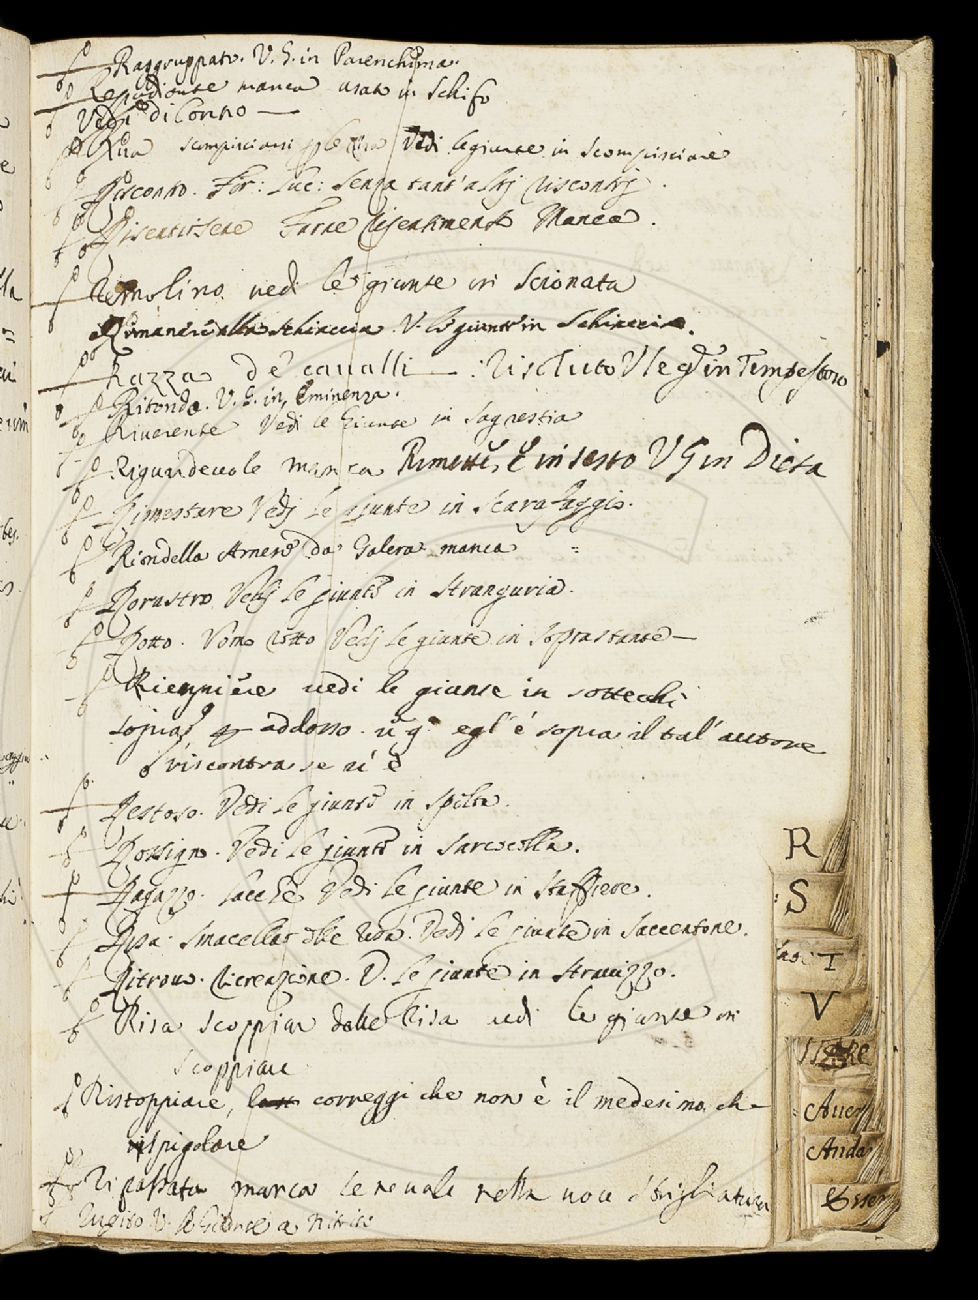 Raggruppato. V. G. in Parenchima.
Repudiante manca usato in Schifo
Vedi di Conno —
Risa scompisciarsi delle risa Vedi le giunte in Scompisciare
Risconto. For: Luc: senza tant'altri riscontri.
Risentirsene Farne risentimento Manca.
Remolino vedi le giunte in Scionata
Rimanere alla schiaccia V. le giunte in Schiaccia.
Razza de cavalli — : Risoluto V le G in Tempestoso
Ritondo. V. G. in Eminenza.
Riverente Vedi le Giunte in Sagrestia
Riguardevole manca Rimettere in sesto V G in Dieta
Rimestare Vedi le giunte in Scarafaggio.
Riondella Arnese da Galera manca =
Rovastro Vedi le giunte in Stranguria.
Rotto. Vomo rotto Vedi le giunte in Soprastante —
Riempiere vedi le giunte in sottecchi
sopra addosso. egl' è sopra il tal' autore
riscontra se v' è
Restoso. Vedi le giunte in Spilta.
Rossigno. Vedi le giunte in Sarcocolla.
Ragazzo. Lacchè Vedi le giunte in Staffiere.
Risa. Smacellar delle risa. Vedi le giunte in Saccentone.
Ritrovo. Ricreazione. V. le giunte in Stravizzo.
Risa Scoppiar dalle risa vedi le giunte in
Scoppiare
Ristoppiare, correggi che non è il medesimo, che
rispigolare
Ripassata manca le nevale nella voce sbrigliatura
Rugito V. le Giunte a
R
S
T
V
Auer
Anda
Esser